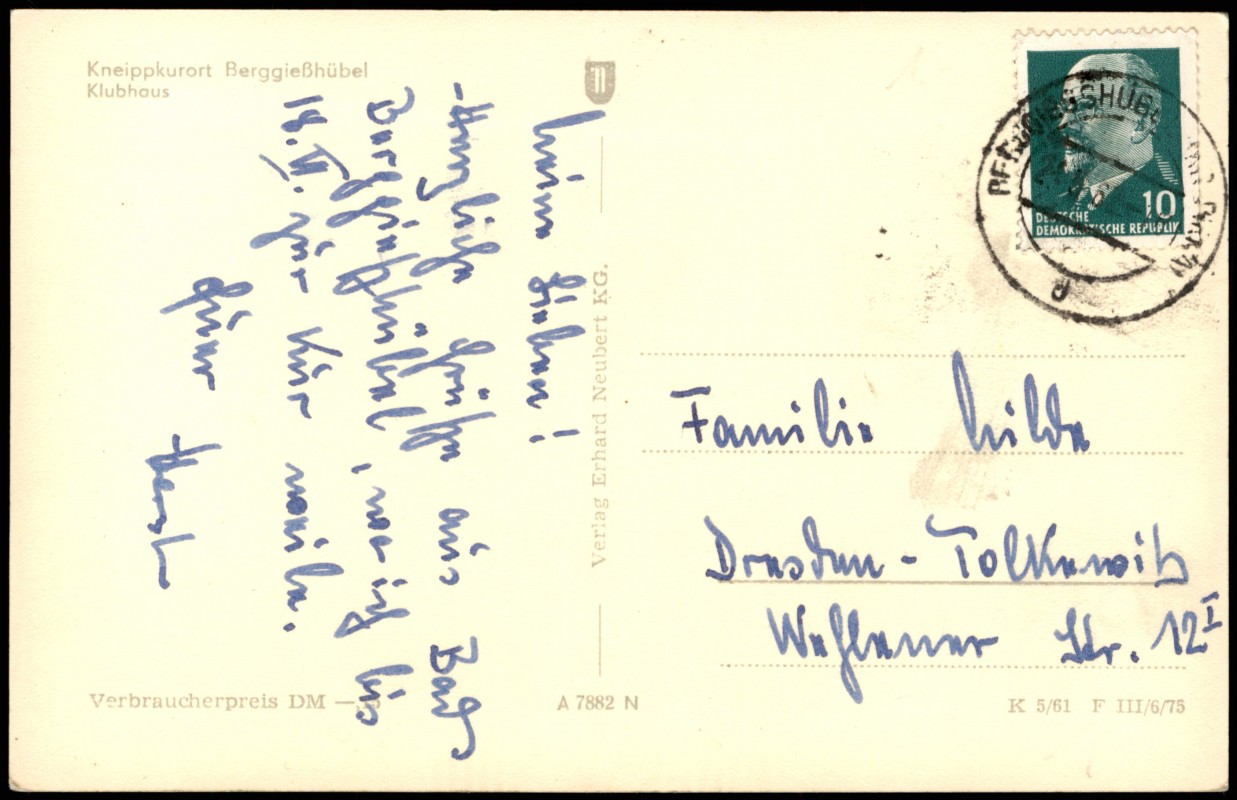 Kneippkurort Berggießhübel
Klubhaus
Meine Lieben!
Herzliche Grüße aus Bad
Berggießhübel, wo ich bis
18. VI. zur Kur weile.
Euer
Horst
Verlag Erhard Neubert KG.
10
DEUTSCHE
DEMOKRATISCHE REPUBLIK
Familie
Dresden - Tolkewitz
Wehlener Str. 12 I
Verbraucherpreis DM
A 7882 N
K 5/61 F III/6/75